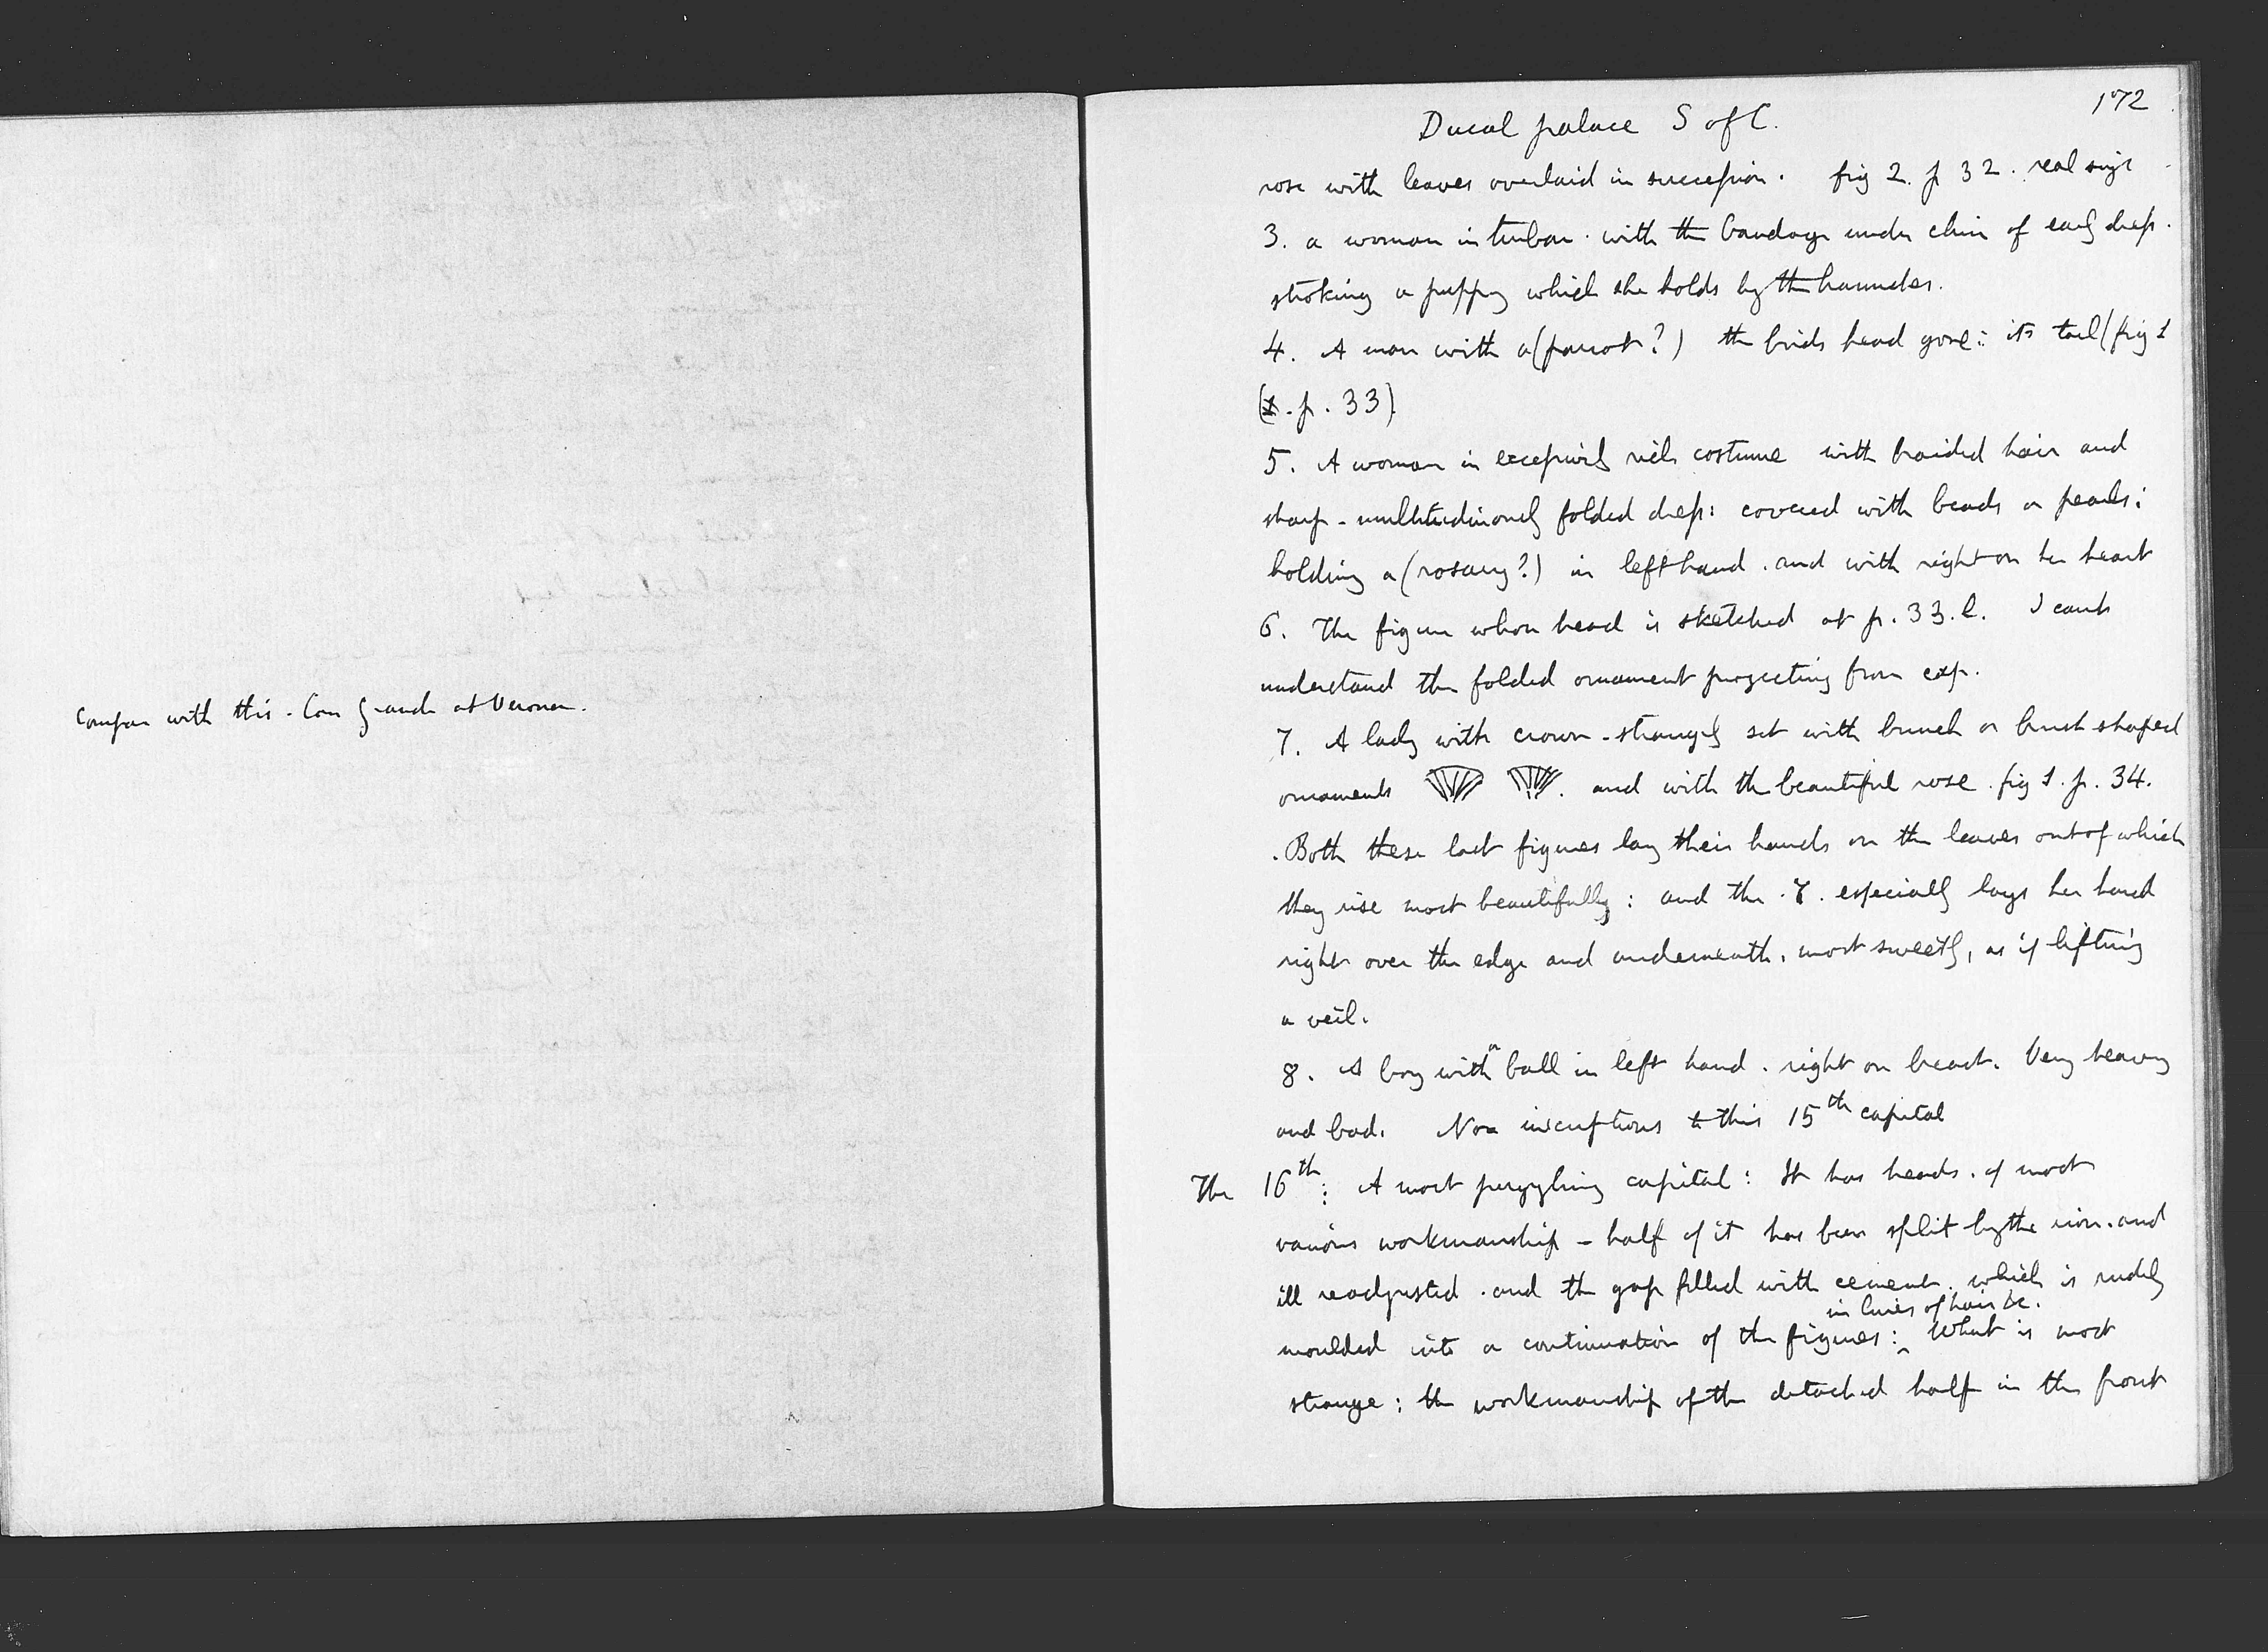 Compare with this - Can Grande at Verona.
172
Ducal palace S of C.
rose with leaves overlaid in succession. fig 2. p 32. real size
3. a woman in turban. with the bandage under chin of early dress.
stroking a puppy which she holds by the haunches.
4. A man with a (parrot?) the birds head gone: its tail (fig 1
(1. p. 33).
5. A woman in excessively rich costume with braided hair and
sharp - multitudinously folded dress: covered with beads or pearls:
holding a (rosary?) in left hand. and with right on her heart
6. The figure whose head is sketched at p. 33. l. I cant
understand the folded ornament projecting from cap.
7. A lady with crown - strangely set with bunch or brush shaped
ornaments and with the beautiful rose. fig 1. p. 34.
. Both these last figures lay their hands on the leaves out of which
they rise most beautifully: and the .7. especially lays her hand
right over the edge and underneath, most sweetly, as if lifting
a veil.
8. A boy with a ball in left hand. right on breast. Very heavy
and bad. No inscriptions to this 15th capital
The 16th: A most puzzling capital: It has heads. of most
various workmanship - half of it has been split by the iron. and
ill readjusted. and the gap filled with cement. which is rudely
in lines of hair &c.
moulded into a continuation of the figures: ^ What is most
strange: the workmanship of the detached half in the front